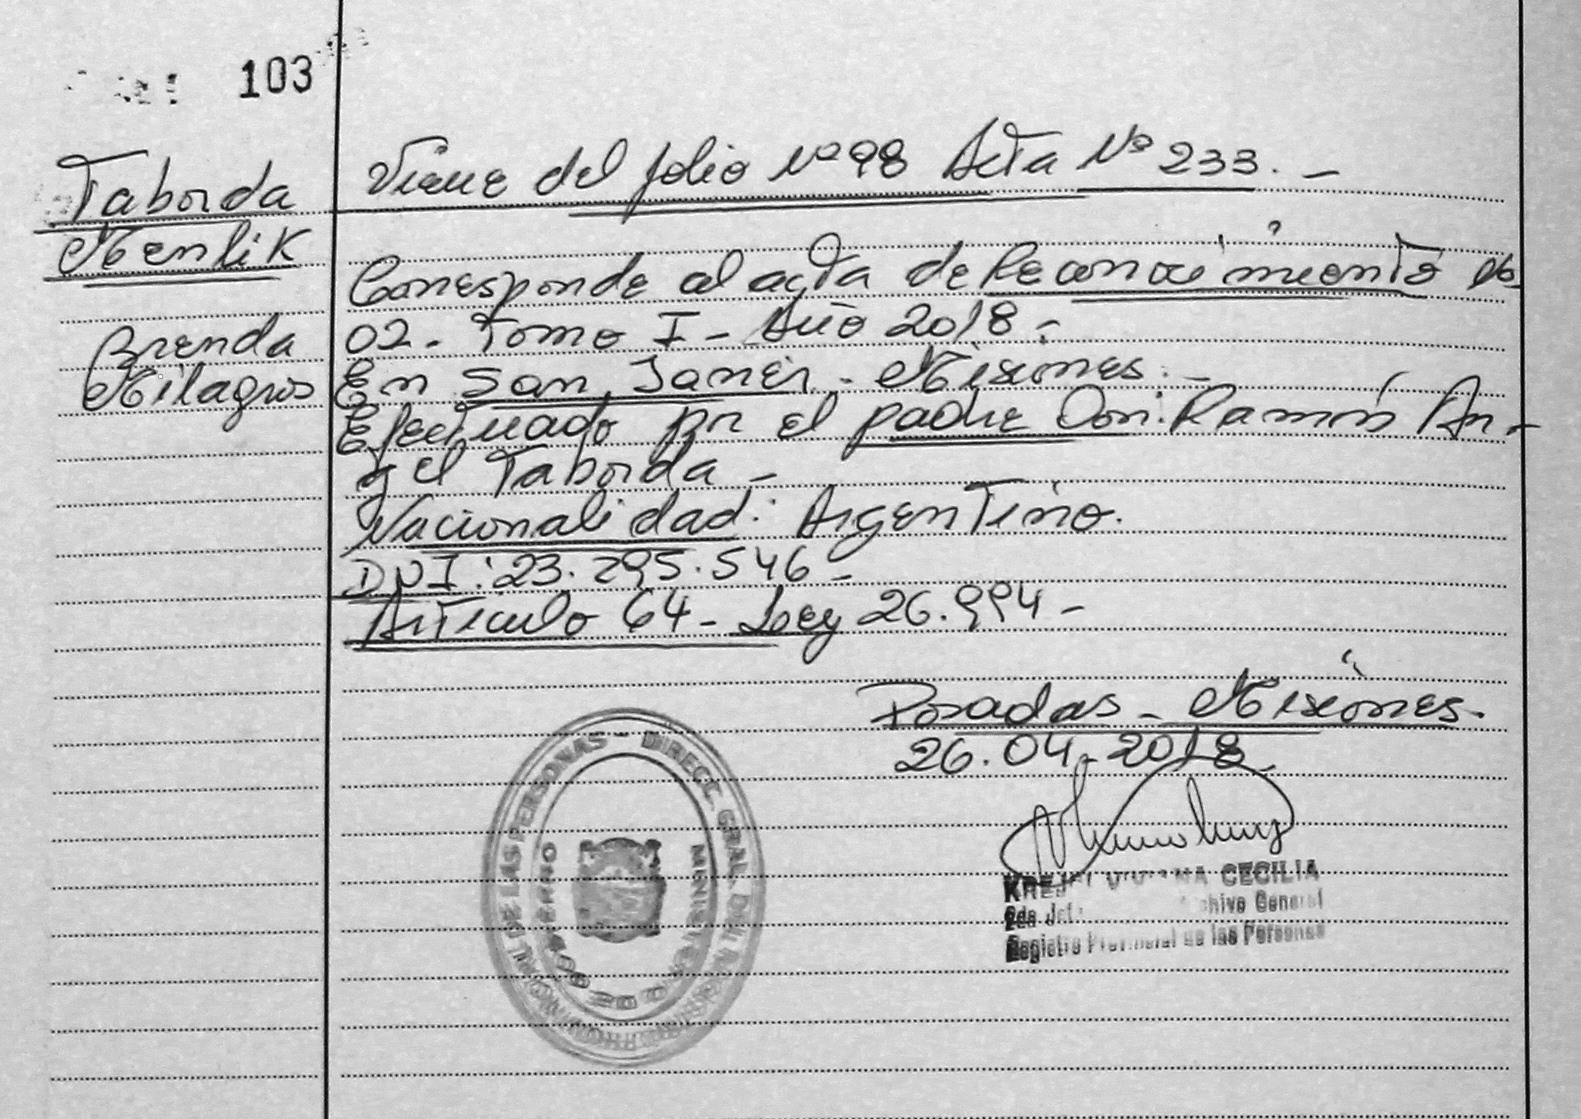 103
Taborda
Menlik
Brenda
Milagros
Viene del folio Nº 98 Acta Nº 233. -
Corresponde al acta de Reconocimiento Nº
02 - Tomo I - Año 2018 -
En San Javier - Misiones. -
Efectuado por el padre Don: Ramón An-
gel Taborda -
Nacionalidad: Argentino.
DNI: 23.295.546 -
Artículo 64 - Ley 26.994 -
Posadas - Misiones.
26.04.2018
DIRECC. GRAL. DEL REGISTRO PROVINCIAL DE LAS PERSONAS -
MINISTERIO DE GOBIERNO
CECILIA
Archivo General
Registro Provincial de las Personas